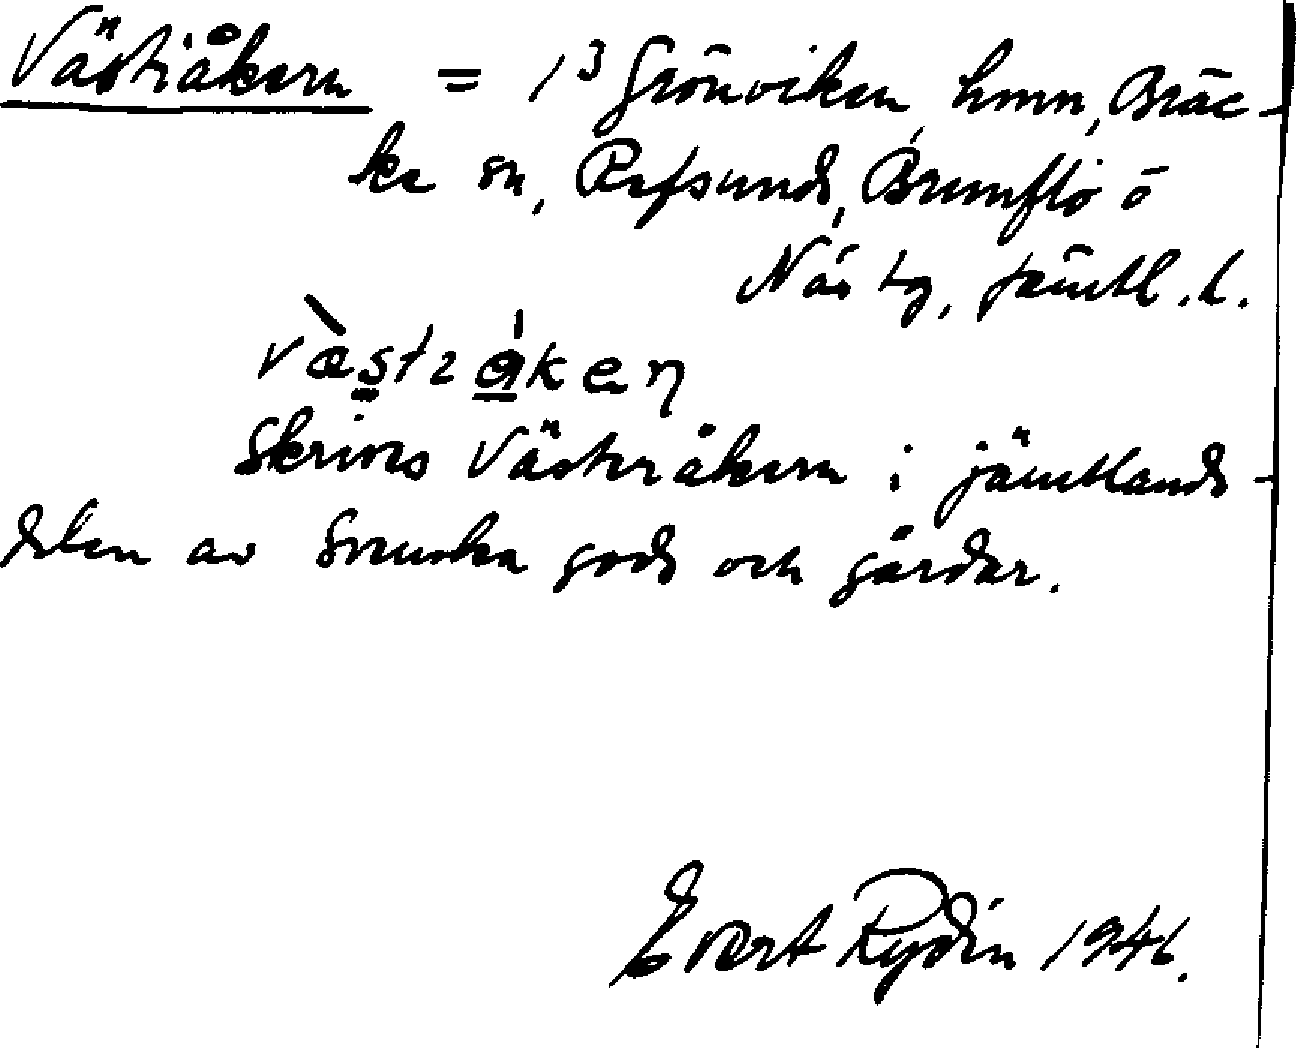 Västiåkern = 1³ Grönviken, hmn, Bräc-
ke sn, Refsunds, Brunflo o
Näs tg, Jämtl. l.
Skrives Västeråkern i jämtlands-
delen av Svenska gods och gårdar.
Evert Rydin 1946.